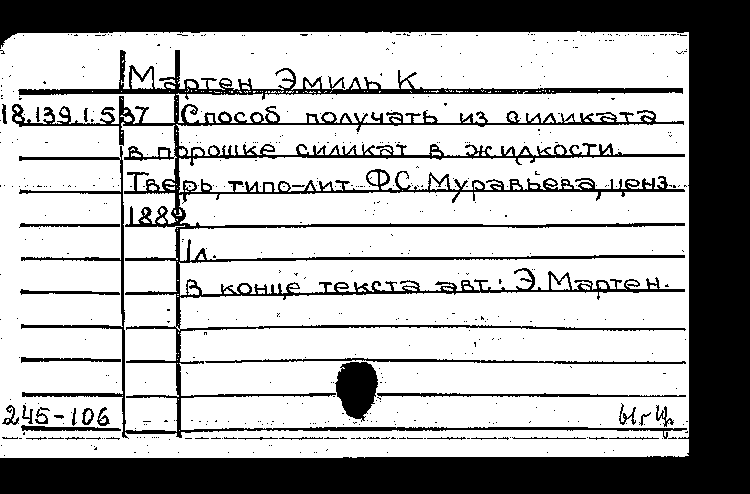 Мартен, Эмиль К.
18.139.1.537 Способ получать из силиката
в порошке силикат в жидкости.
Тверь, типо-лит. Ф.С. Муравьева, ценз.
1889.
1л.
В конце текста авт.: Э. Мартен.
245-106